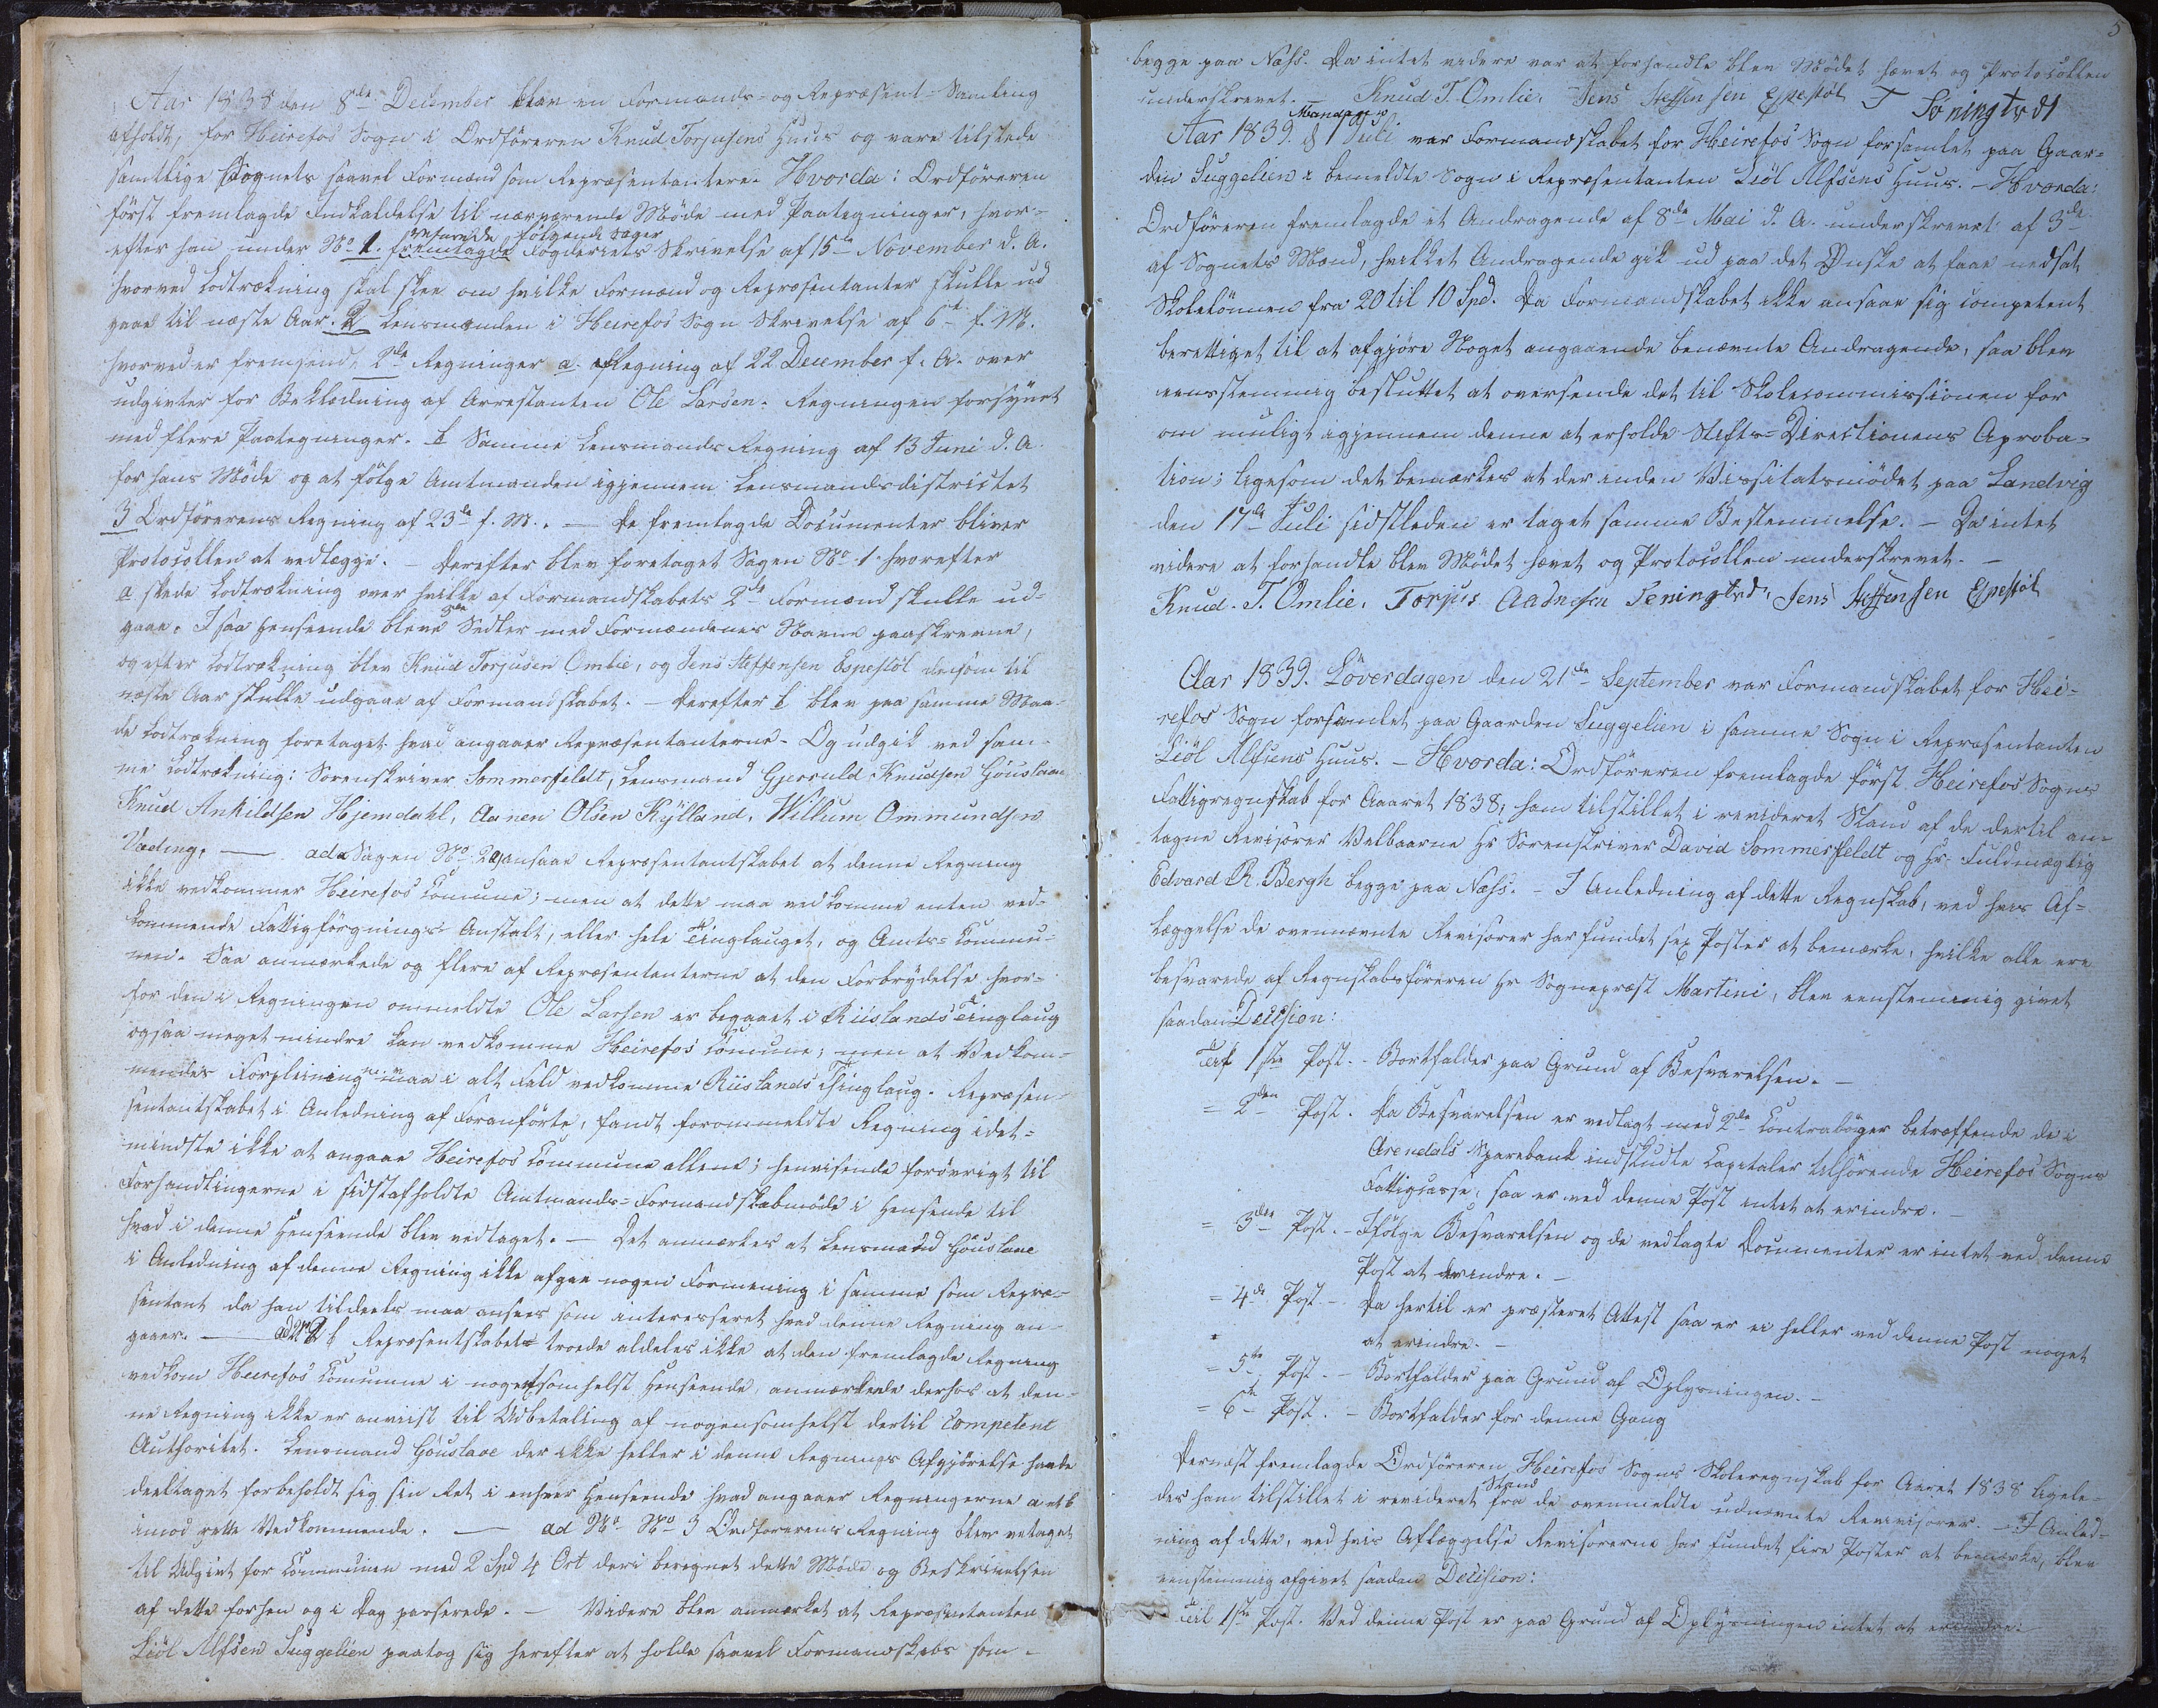 Aar 1838 den 8de December blev en Formands- og Repræsent-Samling
afholdt, for Heirefos Sogn i Ordføreren Knud Torjusens Huus og vare tilstede
samtlige Sognets saavel Formænd som Repræsentantere. Hvorda: Ordføreren
først fremlagde Indkaldelse til nærværende Møde med Paategninger, hvor-
efter han under No 1. fremlagde følgende Sager Fogderiets Skrivelse af 15de November d. A.
hvorved Lodtrækning skal skee om hvilke Formænd og Repræsentanter skulle ud
gaae til næste Aar. 2 Lensmanden i Heirefos Sogn Skrivelse af 6te f. M.
hvorved er fremsend, 2de Regninger a. Regning af 22 December f. A. over
udgivter for Beklædning af Arrestanten Ole Larsen. Regningen forsynet
med flere Paategninger. b Samme Lensmands Regning af 13 Juni d. A.
for hans Møde og at følge Amtmanden igjennem Lensmandsdistrictet
3 Ordførerens Regning af 23de f. M. — De fremlagde Documenter bliver
Protocollen at vedlægge. — Derefter blev foretaget Sagen No 1. hvorefter
a skede Lodtrækning over hvilke af Formandskabets 2de Formænd skulle ud-
gaae. I saa Henseende bleve Sedler med Formændenes Navne paaskrevne,
og efter Lodtrækning blev Knud Torjusen Omlie, og Jens Steffensen Espestøl de som til
næste Aar skulle udgaae af Formandskabet. — Derefter b blev paa samme Maa-
de Lodtrækning foretaget hvad angaaer Repræsentanterne. Og udgik ved sam-
me Lodtrækning: Sorenskriver Sommerfeldt, Lensmand Gjeruld Knudsen Gouslaae
Knud Ankildsen Hjemdahl, Aanen Olsen Kylland, Willum Ommundsen
Væding. — ad Sagen No 2 a, ansaae Repræsentantskabet at denne Regning
ikke vedkommer Heirefos Comune; men at dette maa vedkomme enten ved-
kommende Fattigforsørgnings-Anstalt, eller hele Tinglauget, og Amts-Commu-
nen. Saa anmærkede og flere af Repræsentanterne at den Forbrydelse hvor-
for den i Regningen ommeldte Ole Larsen er begaaet i Riislands Tinglaug
ogsaa meget mindre kan vedkomme Heirefos Comune; men at Vedkom-
mendes Forpleining maa i alt Fald vedkomme Riislands Thinglaug. Repræsen-
sentantskabet i Anledning af Foranførte, fandt forommeldte Regning idet-
mindste ikke at angaae Heirefos Commune allene; henvisende forøvrigt til
Forhandlingerne i sidstafholdte Amtmands-Formandskabmøde i Hensende til
hvad i denne Henseende blev vedtaget. — Det anmærkes at Lensmand Gouslaae
i Anledning af denne Regning ikke afgav nogen Formening i samme som Repræ-
sentant da han tildeels maa ansees som interesseret hvad denne Regning an-
gaaer. — ad No 2 b Repræsentskabet troede aldeles ikke at den fremlagde Regning
vedkom Heirefos Comumne i nogetsomhelst Henseende, anmærkede derhos at den-
ne Regning ikke er anviist til Udbetaling af nogensomhelst dertil competent
Authoritet. Lensmand Gouslaae der ikke heller i denne Regnings Afgjørelse havde
deeltaget forbeholdt sig sin Ret i enhver Henseende hvad angaaer Regningerne a et b
imod rette Vedkommende. — ad No No 3 Ordførerens Regning blev vetaget
til Udgivt for Communen med 2 Spd 4 Ort deri beregnet dette Møde og Beskrivelsen
af dette forhen og i Dag passerede. — Videre blev anmærket at Repræsentanten
Liøl Alfsen Suggelien paatog sig herefter at holde saavel Formandskabs som
5
begge paa Næss. Da intet videre var at forhandle blev Mødet hævet og Protocollen
underskrevet. — Knud T. Omlie. Jens Steffensen Espestøl T Føningtvdt
Aar 1839. Mandag d 1 Juli var Formandskabet for Heirefos Sogn forsamlet paa Gaar-
den Suggelien i bemeldte Sogn i Repræsentanten Liøl Alfsens Huus. — Hvorda:
Ordføreren fremlagde et Andragende af 8de Mai d. A. underskrevet af 3de
af Sognets Mænd, hvilket Andragende gik ud paa det Ønske at faae nedsat
Skolelønnen fra 20 til 10 Spd. Da Formandskabet ikke ansaae sig competent
berettiget til at afgjøre Noget angaaende benævnte Andragende, saa blev
eensstemmig besluttet at oversende det til Skolecommissionen for
om muligt igjennem denne at erholde Stifts-Directionens Aproba-
tion; ligesom det bemærkes at der inden Vissitatsmødet paa Landvig
den 17de Juli sidstleden er taget samme Bestemmelse. — Da intet
videre at forhandle blev Mødet hævet og Protocollen underskrevet. —
Knud. T. Omlie. Torjus Aadnesen Feningtvdt, Jens Steffensen Espestøl
Aar 1839. Løverdagen den 21de September var Formandskabet for Hei-
refos Sogn forsamlet paa Gaarden Suggelien i samme Sogn i Repræsentanten
Liøl Alfsens Huus. — Hvorda: Ordføreren fremlagde først Heirefos Sogns
Fattigregnskab for Aaaret 1838, ham tilstillet i revideret Stand af de dertil an-
tagne Revisorer Velbaarne Hr Sorenskriver David Sommerfeldt og Hr. Fuldmægtig
Edvard R. Bergh begge paa Næss. — I Anledning af dette Regnskab, ved hvis Af-
læggelse de ovennævnte Revisorer har fundet sex Poster at bemærke, hvilke alle ere
besvarede af Regnskabsføreren Hr Sognepræst Martini, blev eenstemmig givet
saadan Decision:
Til 1ste Post. — Bortfalder paa Grund af Besvarelsen. —
= 2den Post. Da Besvarelsen er vedlagt med 2de Contrabøger betræffende de i
Arendals Sparebank indskudte Capitaler tilhørende Heirefos Sogns
Fattigcasse, saa er ved denne Post intet at erindre. —
= 3die Post. — Ifølge Besvarelsen og de vedlagte Documenter er intet ved denne
Post at erindre. —
= 4de Post — Da hertil er præsteret Attest saa er ei heller ved denne Post noget
at erindre. —
= 5te Post. — Bortfalder paa Grund af Oplysningen. —
= 6te Post. — Bortfalder for denne Gang
Dernæst fremlagde Ordføreren Heirefos Sogns Skoleregnskab for Aaret 1838 ligele-
des ham tilstillet i revideret Stand fra de ovenmeldte udnævnte Revisorer. — I Anled-
ning af dette, ved hvis Aflæggelse Revisorerne har fundet fire Poster at bemærke, blev
eenstemmig afgivet saadan Decision:
Til 1ste Post. Ved denne Post er paa Grund af Oplysningen intet at erindre.